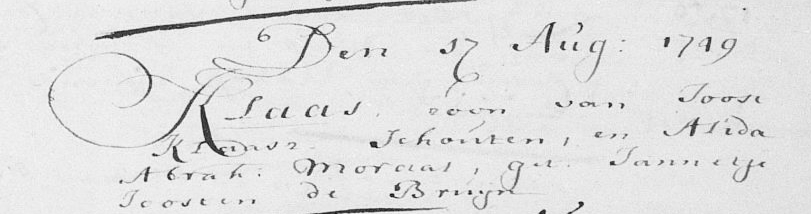 Den 17 Aug: 1749
Klaas, zoon van Joost
Klaasz. Schouten, en Alida
Abrah: Moraas, get. Jannetje
Joosten de Bruijn